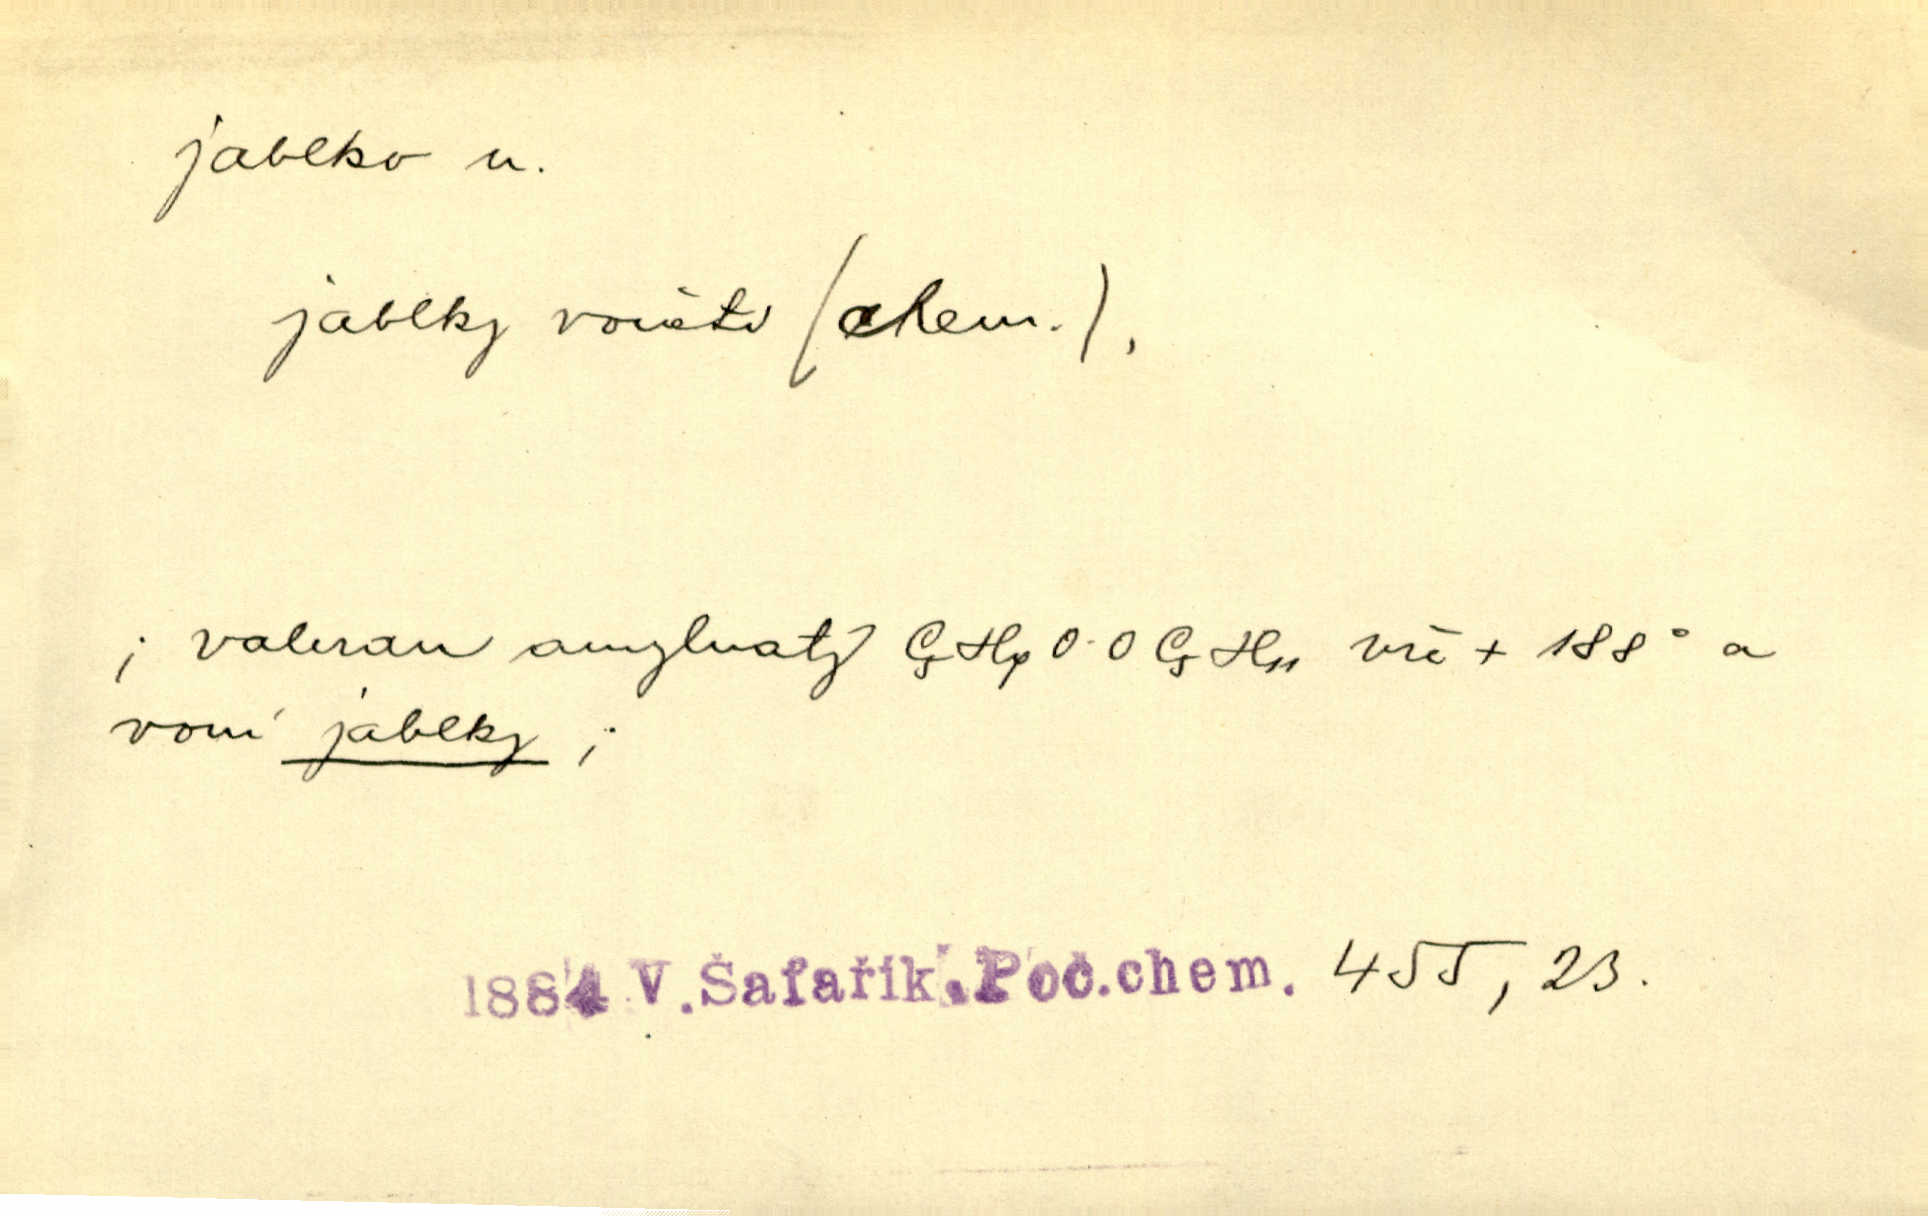 jablko n.
jablky voněti (chem.),
; valeran amylnatý C₅H₉O·O C₅H₁₁ vře + 188° a
voní jablky ;
1884 V.Šafařík.Poč.chem. 455, 23.